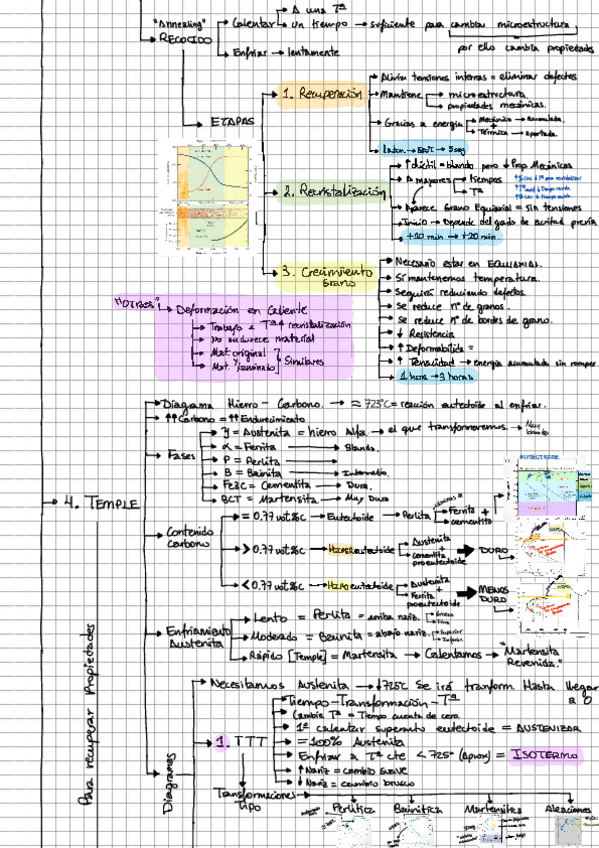 "Annealing"
RECOCIDO
Calentar
A una Tª
Un tiempo → suficiente para cambiar microestructura,
por ello cambia propiedades
Enfriar → lentamente
ETAPAS
1. Recuperación
Alivia tensiones internas = eliminar defectos
Mantiene
microestructura
propiedades mecánicas.
Gracias a energía
Mecánica → acumulada.
+
Térmica → aportada.
2. Recristalización
↑ dúctil = blando pero ↓ Prop. Mecánicas
A mayores
tiempos
Tª
Aparece Grano Equiaxial = sin tensiones
Inicio → Depende del grado de acritud previa
+10 min → +20 min.
3. Crecimiento
Grano
Necesario estar en EQUIAXIAL.
Si mantenemos temperatura.
Seguirá reduciendo defectos.
Se reduce nº de granos.
Se reduce nº de bordes de grano.
↓ Resistencia
↑ Deformabilidad =
↑ Tenacidad → energía acumulada sin romper
1 hora → 3 horas
"HOTRASS"
Deformación en Caliente
Trabajo a Tª ↑ recristalización
No endurece material
Mat. original
Mat. "laminado"
Similares
Para recuperar Propiedades
4. TEMPLE
Diagrama Hierro - Carbono. → ≈ 723ºC = reacción eutectoide al enfriar.
↑↑ Carbono = ↑↑ Endurecimiento
Fases
γ = Austenita = hierro Alfa. → el que transformaremos → Muy blando
α = Ferrita → Blanda.
P = Perlita →
B = Bainita → Intermedio.
Fe3C = Cementita → Dura.
BCT = Martensita → Muy Dura
Contenido
carbono
= 0.77 wt%C → Eutectoide → Perlita
Ferrita +
cementita
> 0.77 wt%C → Hipereutectoide
Austenita
+
cementita
proeutectoide
DURO
< 0.77 wt%C → Hipoeutectoide
Austenita
+
Ferrita
proeutectoide
MENOS
DURO
Enfriamiento
Austenita
Lento = Perlita = arriba nariz.
Moderado = Bainita = abajo nariz.
Superior
Inferior
Rápido [Temple] = Martensita → Calentamos → "Martensita
Revenida."
Diagramas
Necesitamos Austenita → ↓725ºC Se irá tranform. Hasta llegar
a 0
1. TTT
Tiempo-Transformación-Tª
Cambia Tª = Tiempo cuenta de cero.
1º calentar supermto eutectoide = AUSTENIZAR
= 100% Austenita
Enfriar a Tª cte < 725º (Aprox) = ISOTERMO
↑ Nariz = cambio suave
↓ Nariz = cambio brusco
Transformaciones
Tipo
Perlítica
Bainítica
Martensítica
Aleaciones